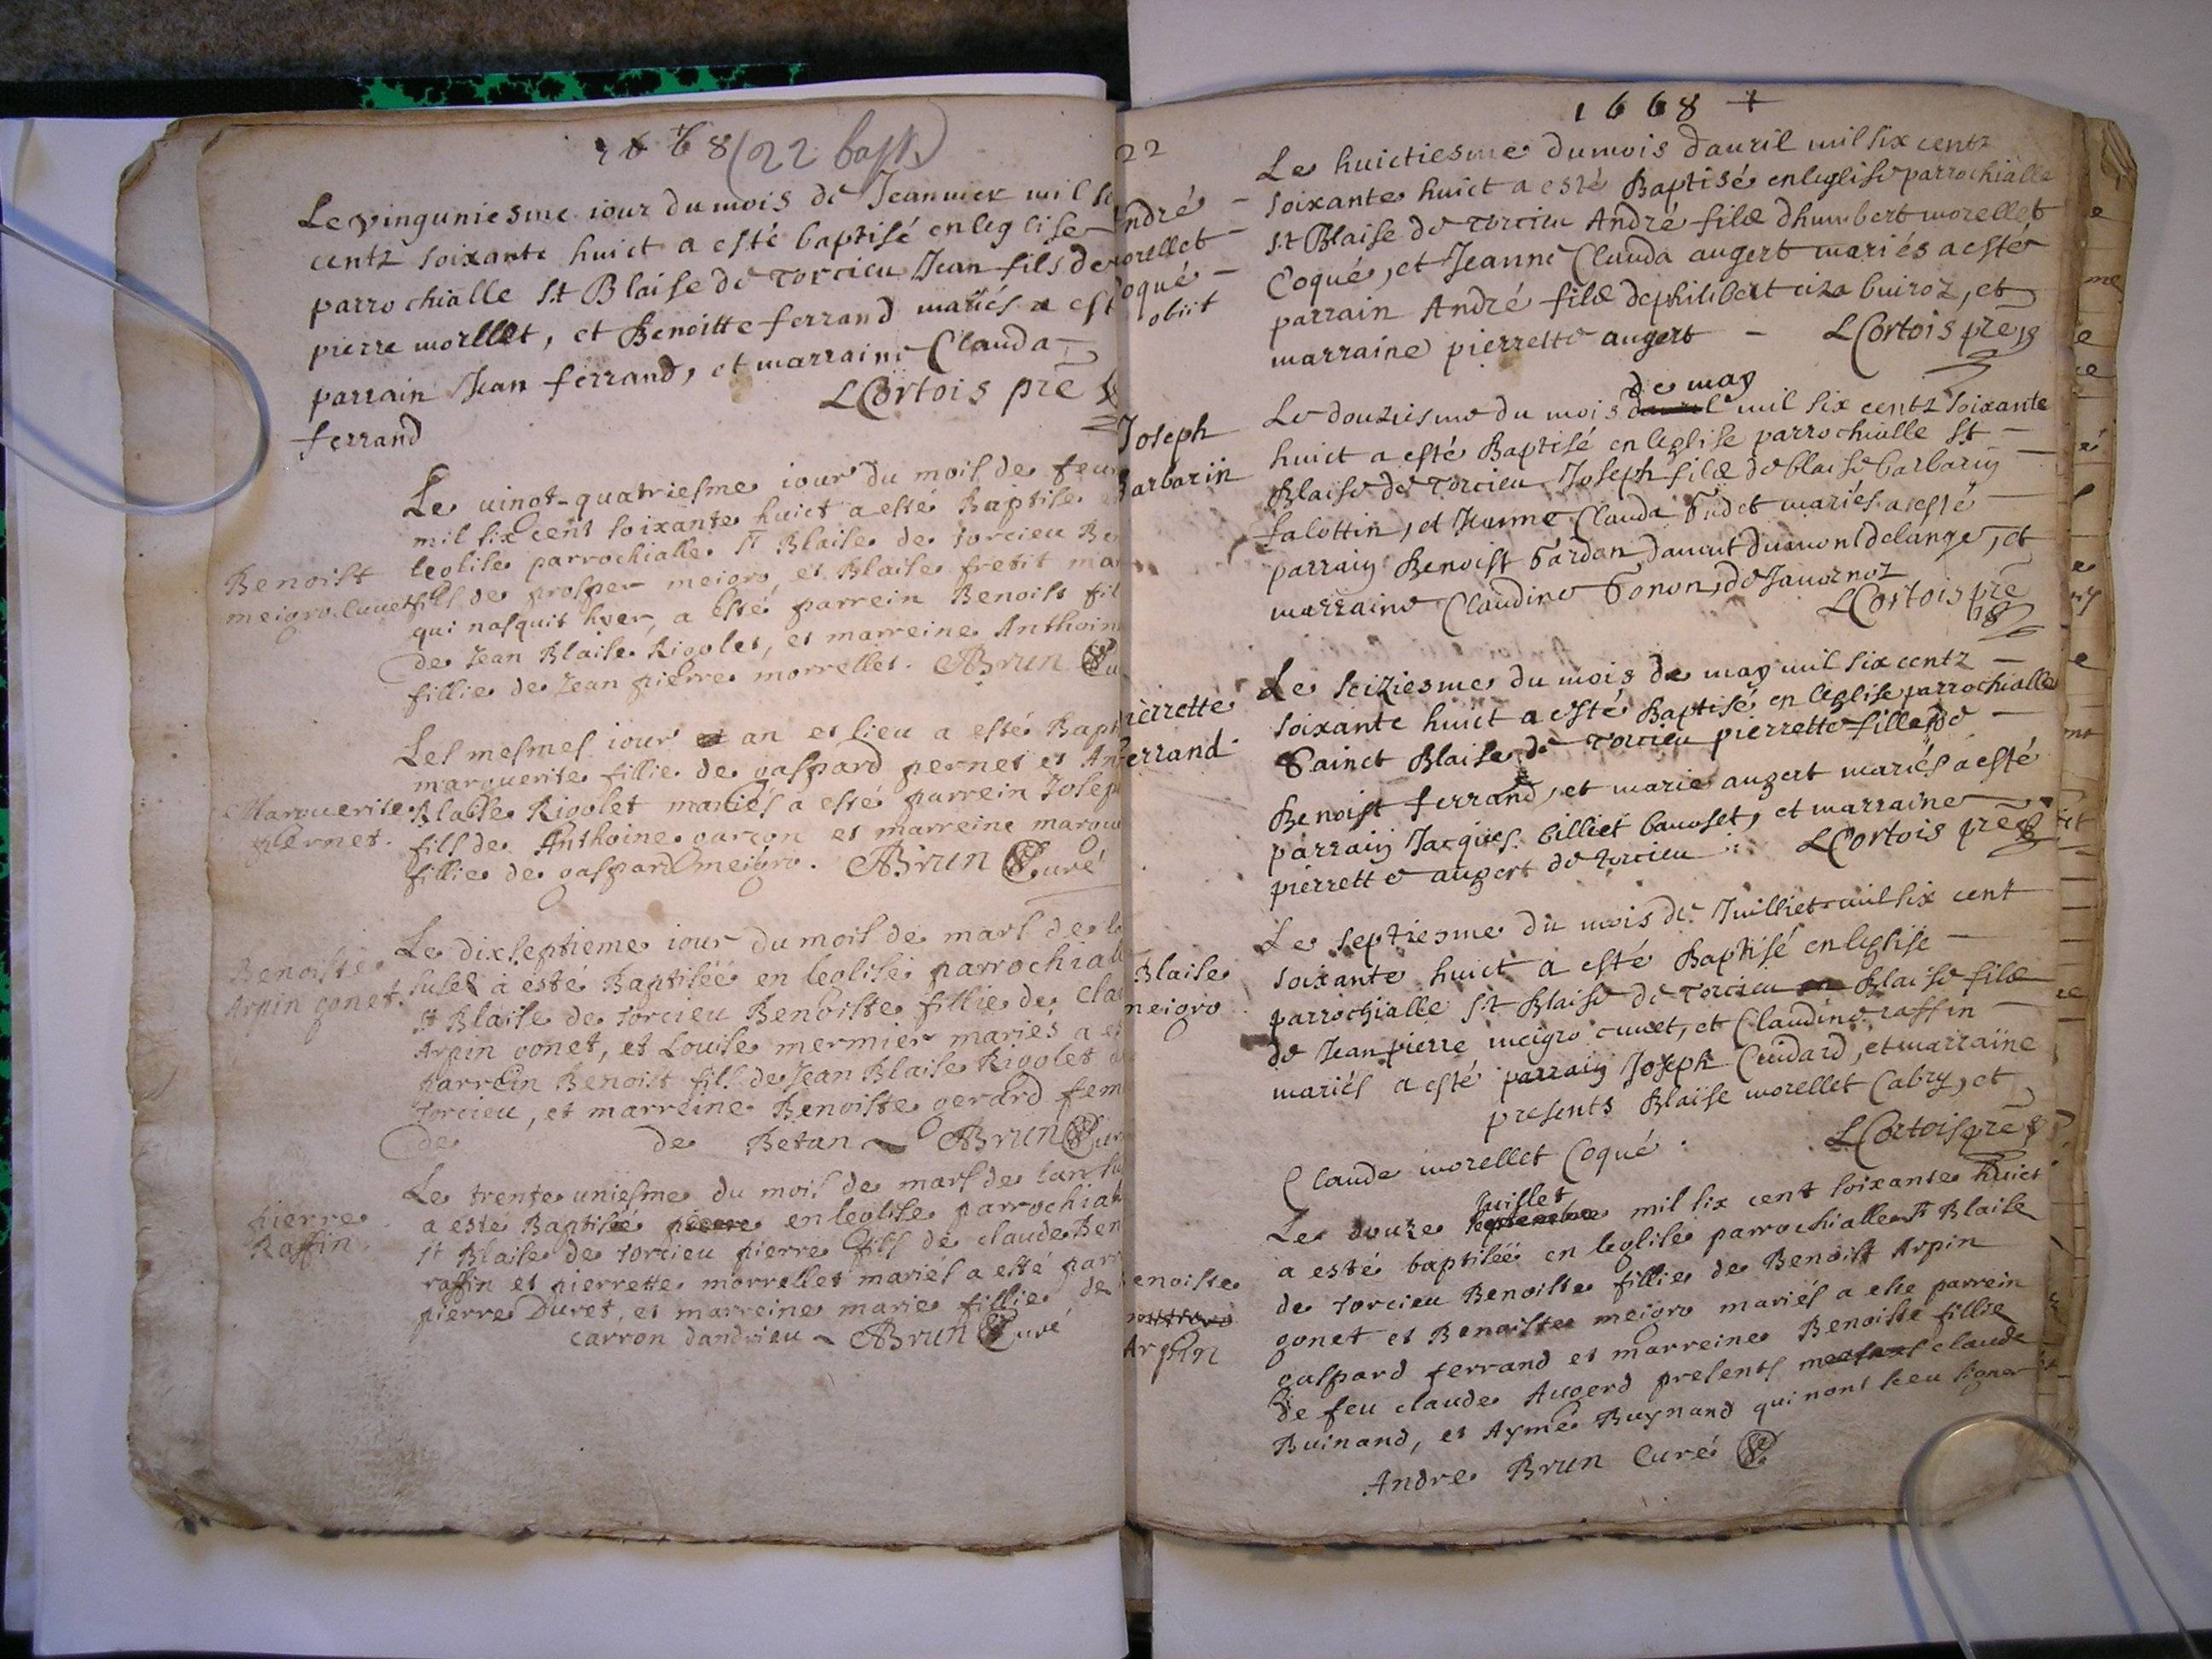 1668 (22 bapt.)
Le vinguniesme iour du mois de Jeanuier mil si
centz soixante huict a esté baptisé en leglise
parrochialle St Blaise de Torcieu Jean fils de
pierre morellet, et Benoitte ferrand mariés a est
parrain Jean ferrand, et marraine Clauda
ferrand
LCortois pre
Benoist
meigro cuuet
Le uingt-quatriesme iour du mois de feur
mil six cent soixante huict a esté Baptise e
leglise parrochialle st Blaise de torcieu Be
fils de prosper meigro, et Blaise fretit mar
qui nasquit hyer, a esté parrein Benoist fil
de Jean Blaise Rigolet, et marreine Anthoin
fillie de Jean pierre morrellet. ABrun Cu
Marguerite
pernet.
Les mesmes iour et an et lieu a esté Bapt
marguerite fillie de gaspard pernet et An
Blaise Rigolet mariés a esté parrein Josep
fils de Anthoine garçon et marreine margue
fillie de gaspard meigro. ABrun Curé
Benoiste
Arpin gonet.
Le dixseptieme iour du mois de mars de la
susd a esté Baptisée en leglise parrochiall
st Blaise de torcieu Benoiste fillie de Clau
Arpin gonet, et Louise mermier mariés a es
parrein Benoist fils de Jean Blaise Rigolet d
torcieu, et marreine Benoiste gerard fem
de de Betan ABrun Cur
pierre
Raffin.
Le trente uniesme du mois de mars de lan su
a esté Baptisée pierre en leglise parrochiall
st Blaise de torcieu pierre fils de claude Ben
raffin et pierrette morrellet mariés a esté parr
pierre Duret, et marreine marie fillie de
carron dandrieu ABrun Curé
22
1668 +
ndré
orellet
oqué
obiit
Le huictiesme du mois dauril mil six centz
soixante huict a esté Baptisé en leglise parrochialle
St Blaise de Torcieu André filz dhumbert morellet
Coqué, et Jeanne Clauda augert mariés a esté
parrain André filz dephilibert ciza buiroz, et
marraine pierrette augert LCortois pre
Joseph
Barbarin
de may
Le douziesme du mois dauril mil six centz soixante
huict a esté Baptisé en leglise parrochialle St
Blaise de Torcieu Joseph filz de blaise barbarin
falottin, et Jeanne Clauda Sudet mariés a esté
parrain Benoist Sardan daneut dumont delange, et
marraine Claudine Tonon, de Jauornoz
LCortois pre
ierrette
errand
Le seiziesme du mois de may mil six centz
soixante huict a esté Baptisé en leglise parrochialle
Sainct Blaise de Torcieu pierrette fille de
Benoist ferrand, et marie augert mariés a esté
parrain Jacques billiet bauoset, et marraine
pierrette augert de torcieu LCortois pre
Blaise
meigro
Le septiesme du mois de Juilliet mil six cent
soixante huict a esté Baptisé en leglise
parrochialle St Blaise de Torcieu Blaise filz
de Jean pierre meigro cuuet, et Claudine raffin
mariés a esté parrain Joseph Cuidard, et marraine
presents Blaise morellet Cabry, et
Claude morellet Coqué. LCortois pre
enoiste
Arpin
Juillet
Le douze septembre mil six cent soixante huict
a esté baptisée en leglise parrochialle st Blaise
de torcieu Benoiste fillie de Benoist Arpin
gonet et Benoiste meigro mariés a este parrein
gaspard ferrand et marreine Benoiste fillie
de feu claude Augerd presents claude
Buinand, et Ayme Buynand qui nont sceu signer
Andre Brun Curé